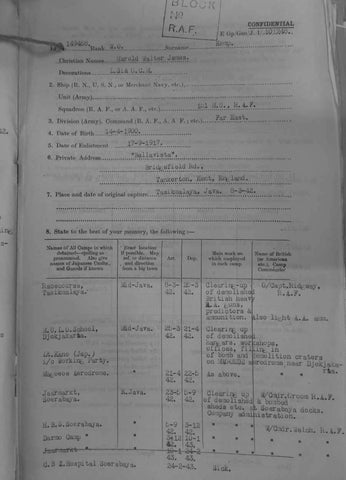 BLOCK
R.A.F.
CONFIDENTIAL
Rank W.O. Surname
Christian Names Harold Walter James.
Decorations
2. Ship (R. N., U. S. N., or Merchant Navy, etc.),
Unit (Army)
Squadron (R. A. F., or A. A. F., etc.) R.A.F.
3. Division (Army), Command (R. A. F., A. A. F.; etc.) Far East.
4. Date of Birth 14-4-1900.
5. Date of Enlistment 17-9-1917.
6. Private Address "Bellavista",
Bridgefield Rd.,
Tankerton, Kent, England.
7. Place and date of original capture Tasikmalaya, Java. 8-3-42.
8. State to the best of your memory, the following:—
Names of All Camps in which
detained—spelling as
pronounced. Also give
names of Japanese Comdts.,
and Guards if known
Exact location
if possible. May
ref. or distance
and direction
from a big town
Arr. Dep.
Main work on
which employed
in each camp.
Name of British
(or American
etc.), Camp
Commander
Racecourse, Mid-Java. 8-3- Clearing-up G/Capt.Ridgway.
Tasikmalaya. 42. 42. of demolished R.A.F.
British heavy
A.A. guns,
predictors &
ammunition. Also light A.A. ammn.
School, Mid-Java. 21-4 Clearing up
Djokjakarta. 42. 42. of demolished
hangars, workshops,
offices, filling in
Lt. Kano (Jap.) of bomb and demolition craters
i/c Working Party. on aerodrome near
Magoeoe Aerodrome. " 21-4 22-5 As above.
42. 42.
Jaarmarkt, E.Java. 23-5 Clearing up W/Cmdr.Groom R.A.F.
Soerabaya. 42. 42. of demolished & bombed
sheds etc. at Soerabaya docks.
Company administration.
H.B.S. Soerabaya. " 3-12 W/Cmdr.Welch. R.A.F.
42. 42.
Darmo Camp " 3-12 10-1
42. 43.
Jaarmarkt " 10-1 24-2
43. 43.
C.B Z.Hospital Soerabaya 24-2-43. Sick.